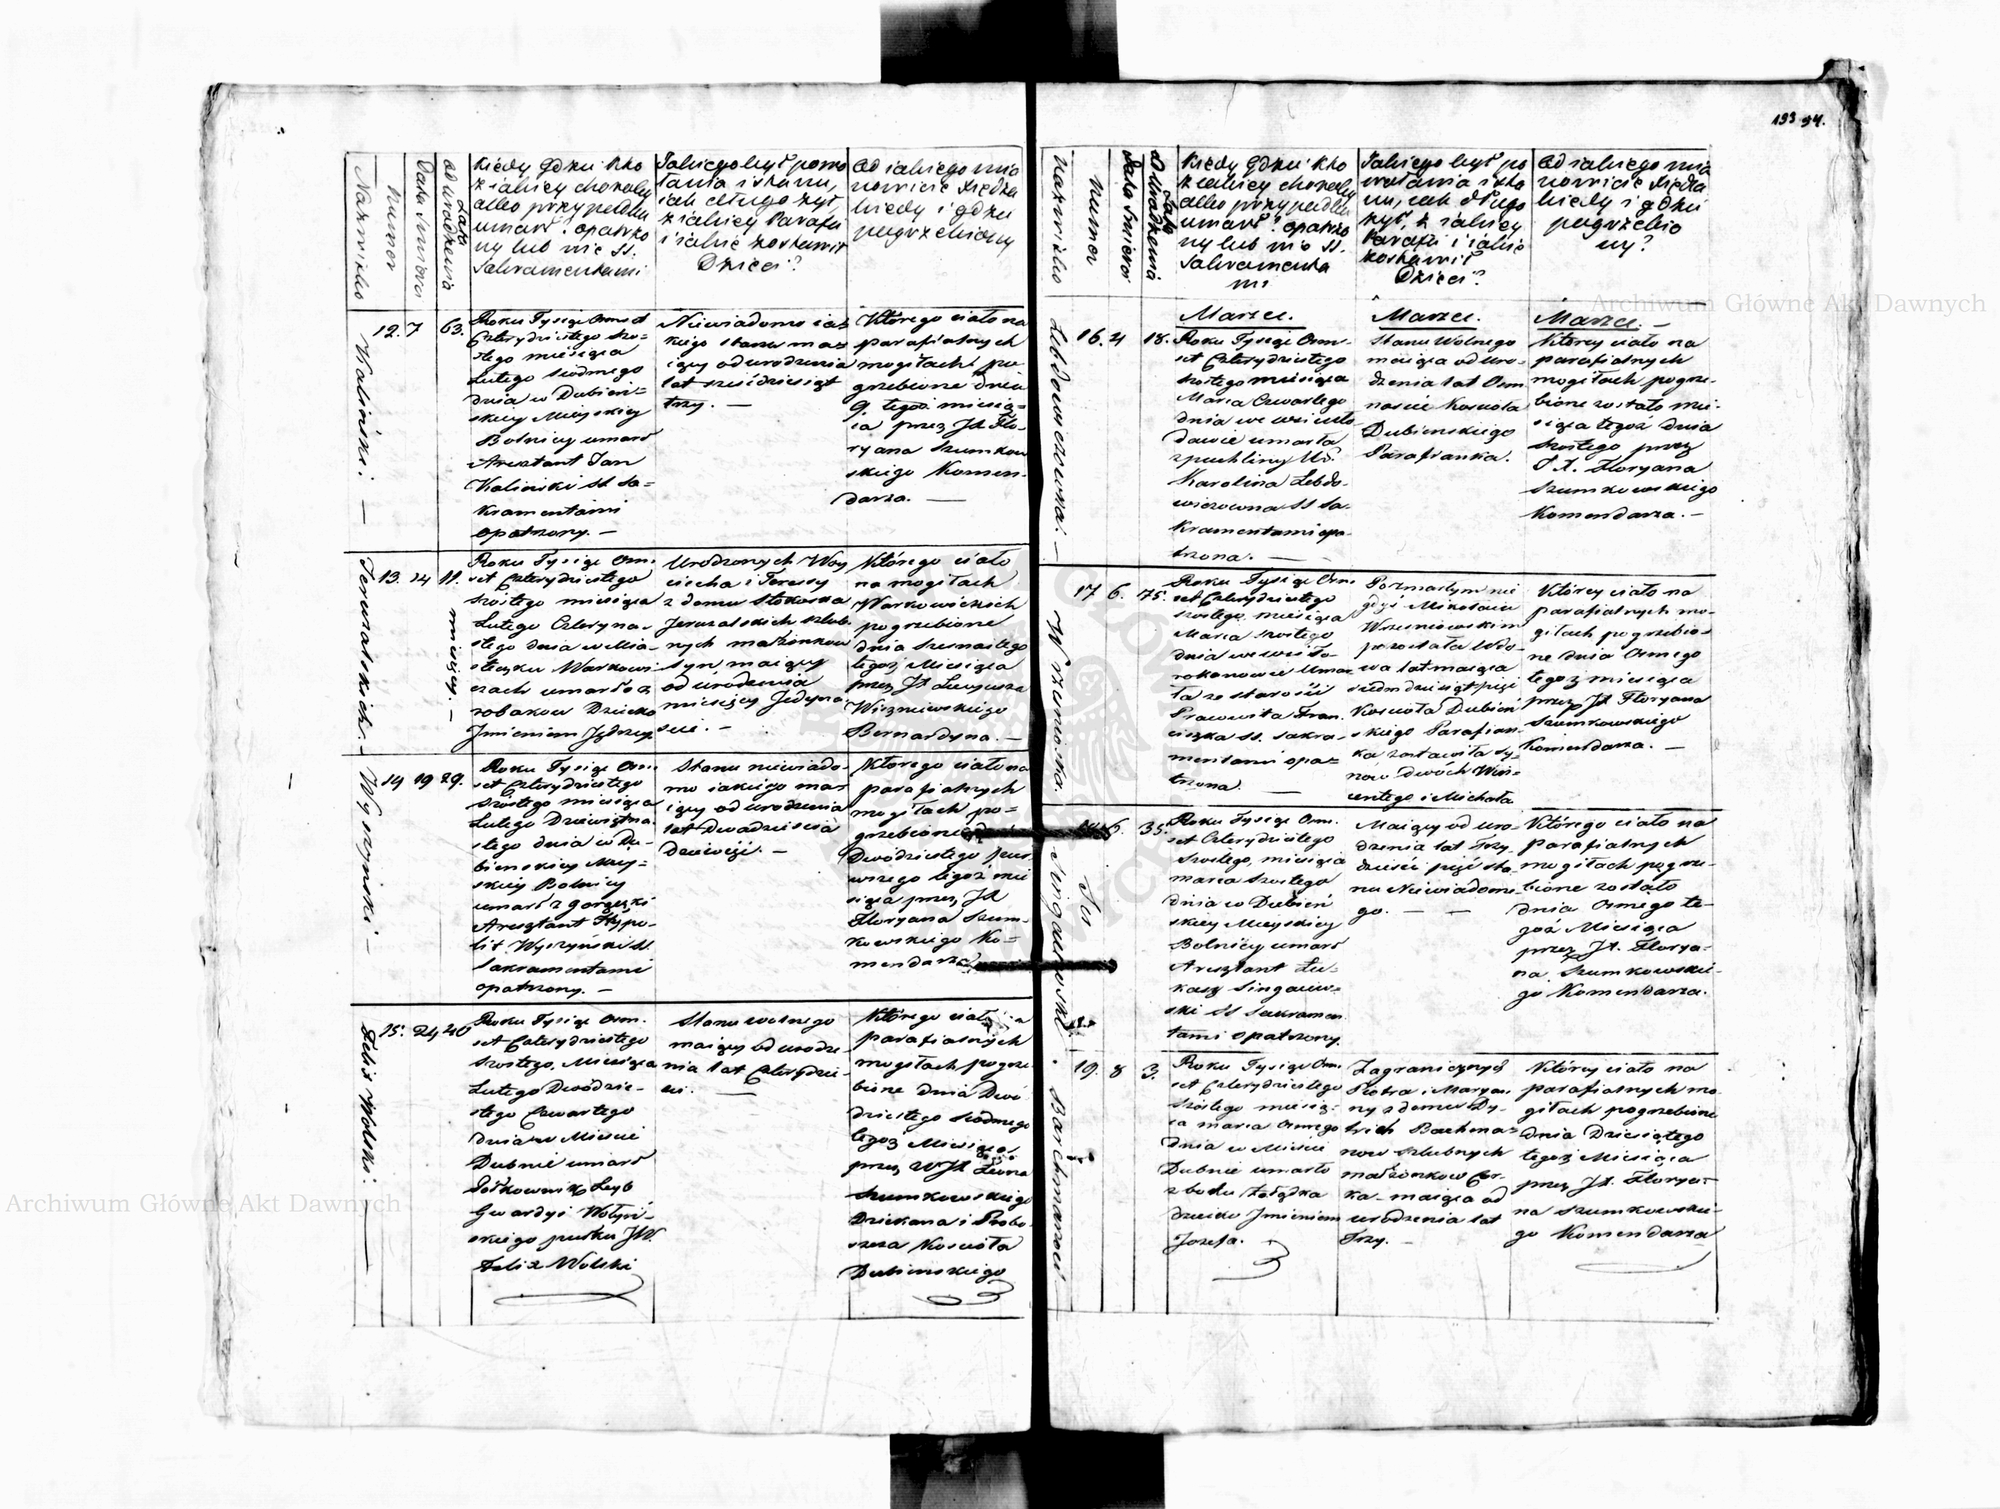 193 94.
Nazwisko
Numer
Data Smierci
Lata od urodzenia
Kiedy gdzie kto
z iakiey choroby
albo przypadku
umarł? opatrzo
ny lub nie SS.
Sakramentami
Jakiego był powo
łania i stanu,
iak długo żył,
z iakiey Parafii
i iakie zostawił
Dzieci?
Od iakiego mia
nowicie Xiędza
kiedy i gdzie
pogrzebiony
Kaliński. —
12. 7 63.
Roku Tysiąc Osmset
Czterydziestego szo=
stego miesiąca
Lutego siodmego
dnia w Dubień=
skiey Mieyskiey
Bolnicy umarł
Aresztant Jan
Kaliński SS Sa=
kramentami
opatrzony. —
Niewiadomo iak
kiego stanu ma=
iący od urodzenia
lat sześćdziesiąt
trzy. —
Którego ciało na
parafialnych
mogiłach po
grzebione dnia
9. tegoż miesią=
ca przez JX Flo=
ryana Szumkow
skiego Komen=
darza. —
Jeruzalskich. —
13. 14 11. miesięcy. —
Roku Tysiąc Osm.
set Czterydziestego
szóstego miesiąca
Lutego Czteryna=
stego dnia w Mia=
steczku Warkowi=
czach umarło z
robakow Dziecko
Imieniem Jędrzey
Urodzonych Woy
ciecha i Teressy
z domu
Jeruzalskich szlub=
nych małżonkow
syn maiący
od urodzenia
miesięcy Jedyna=
scie. —
Którego ciało
na mogiłach
Warkowickich
pogrzebione
dnia Szesnastego
tegoż Miesiąca
przez JX
Wiszniewskiego
Bernardyna. —
Wyszyński —
14 19 29.
Roku Tysiąc Osm.
set Czterydziestego
szóstego miesiąca
Lutego Dziewiętna=
stego dnia w Du=
bienskiey Miey=
skiey Bolnicy
umarł z gorączki
Aresztant Hypo=
lit Wyszyński SS
Sakramentami
opatrzony. —
Stanu niewiado=
mo iakiego ma=
iący od urodzenia
lat Dwadzieścia
Dziewięć. —
Którego ciało na
parafialnych
mogiłach po=
grzebione
Dwódziestego pier=
wszego tegoż mie
siąca przez JX
Floryana Szum=
kowskiego Ko=
mendarza
Felix Wolski. —
15. 24 40
Roku Tysiąc Osm.
set Czterydziestego
szostego, Miesiąca
Lutego Dwódzie=
stego Czwartego
dnia w Mieście
Dubnie umarł
Półkownik Leyb
Gwardyi Wołyń=
skiego pułku JW.
Felix Wolski
Stanu wolnego
maiący od urodze=
nia lat Czterydzie=
ści. —
Którego ciało na
parafialnych
mogiłach pogrze=
bione dnia Dwó
dziestego siódmego
tegoż Miesiąca
przez WJX Leona
Szumkowskiego
Dziekana i Probo=
szcza Kościoła
Dubienskiego
Nazwisko
Numer
Data Smierci
Lata od Urodzenia
Kiedy gdzie kto
z iakiey choroby
albo przypadku
umarł? opatrzo
ny lub nie SS.
Sakramenta
mi
Jakiego był po
wołania i sta
nu, iak długo
żył, z iakiey
Parafii i iakie
zostawił
Dzieci?
Od iakiego mia
nowicie Xiędza
kiedy i gdzie
pogrzebio
ny?
Marzec.
Marzec.
Marzec. —
Lebdowiczowna. —
16. 4 18.
Roku Tysiąc Osm=
set Czterydziestego
szóstego miesiąca
Marca Czwartego
dnia we wsi
umarła
z puchliny
Karolina Lebdo=
wiczowna SS Sa=
kramentami opa=
trzona. —
Stanu Wolnego
maiąca od uro=
dzenia lat Osm
naście Kościoła
Dubienskiego
Parafianka.
Którey ciało na
parafialnych
mogiłach pogrze=
bione zostało mie=
siąca tegoż dnia
szóstego przez
J.X. Floryana
Szumkowskiego
Komendarza. —
Wrzesniewska
17 6. 75.
Roku Tysiąc Osm.
set Czterydziestego
szóstego, miesiąca
Marca szóstego
dnia we wsi
umar=
ła ze starości
Prawowita Fran=
ciszka SS. Sakra=
mentami opa=
trzona. —
Po zmarłym nie
gdyś Mikołaiu
Wrzesniewskim
pozostała Wdo=
wa lat maiąca
siedmdziesiąt pięć
Kościoła Dubien
skiego Parafian=
ka zostawiła sy=
now dwóch Win=
centego i Michała
Którey ciało na
parafialnych mo=
giłach pogrzebio=
ne dnia Osmego
tegoż miesiąca
przez JX Floryana
Szumkowskiego
Komendarza. —
Singaiewski
6. 35.
Roku Tysiąc Osm.
set Czterydziestego
szóstego, miesiąca
marca szóstego
dnia w Dubień
skiey Mieyskiey
Bolnicy umarł
Aresztant Łu=
kasz Singaiew=
ski SS Sakramen
tami opatrzony.
Maiący od uro=
dzenia lat Trzy=
dzieści pięć sta=
nu Niewiadome=
go. —
Którego ciało na
parafialnych
mogiłach pogrze=
bione zostało
dnia Osmego te=
goż Miesiąca
przez JX. Florya=
na Szumkowskie=
go Komendarza.
Bachmanow
19. 8 3.
Roku Tysiąc Osm.
set Czterydziestego
szóstego miesią=
ca marca Osmego
dnia w Mieście
Dubnie umarło
z bolu żołądka
dziecko Imieniem
Jozefa.
Zagranicznych
Piotra i Maryan=
ny z domu
Bachma=
now szlubnych
małżonkow Cor=
ka maiąca od
urodzenia lat
Trzy. —
Którey ciało na
parafialnych mo=
giłach pogrzebione
dnia Dziesiątego
tegoż Miesiąca
przez JX. Florya=
na Szumkowskie=
go Komendarza
Archiwum Główne Akt Dawnych
Archiwum Główne Akt Dawnych